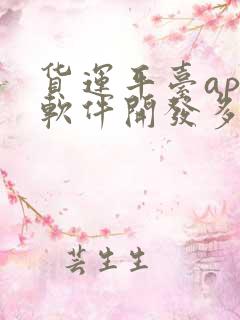 货運平臺ap
軟件開發多
芸生生